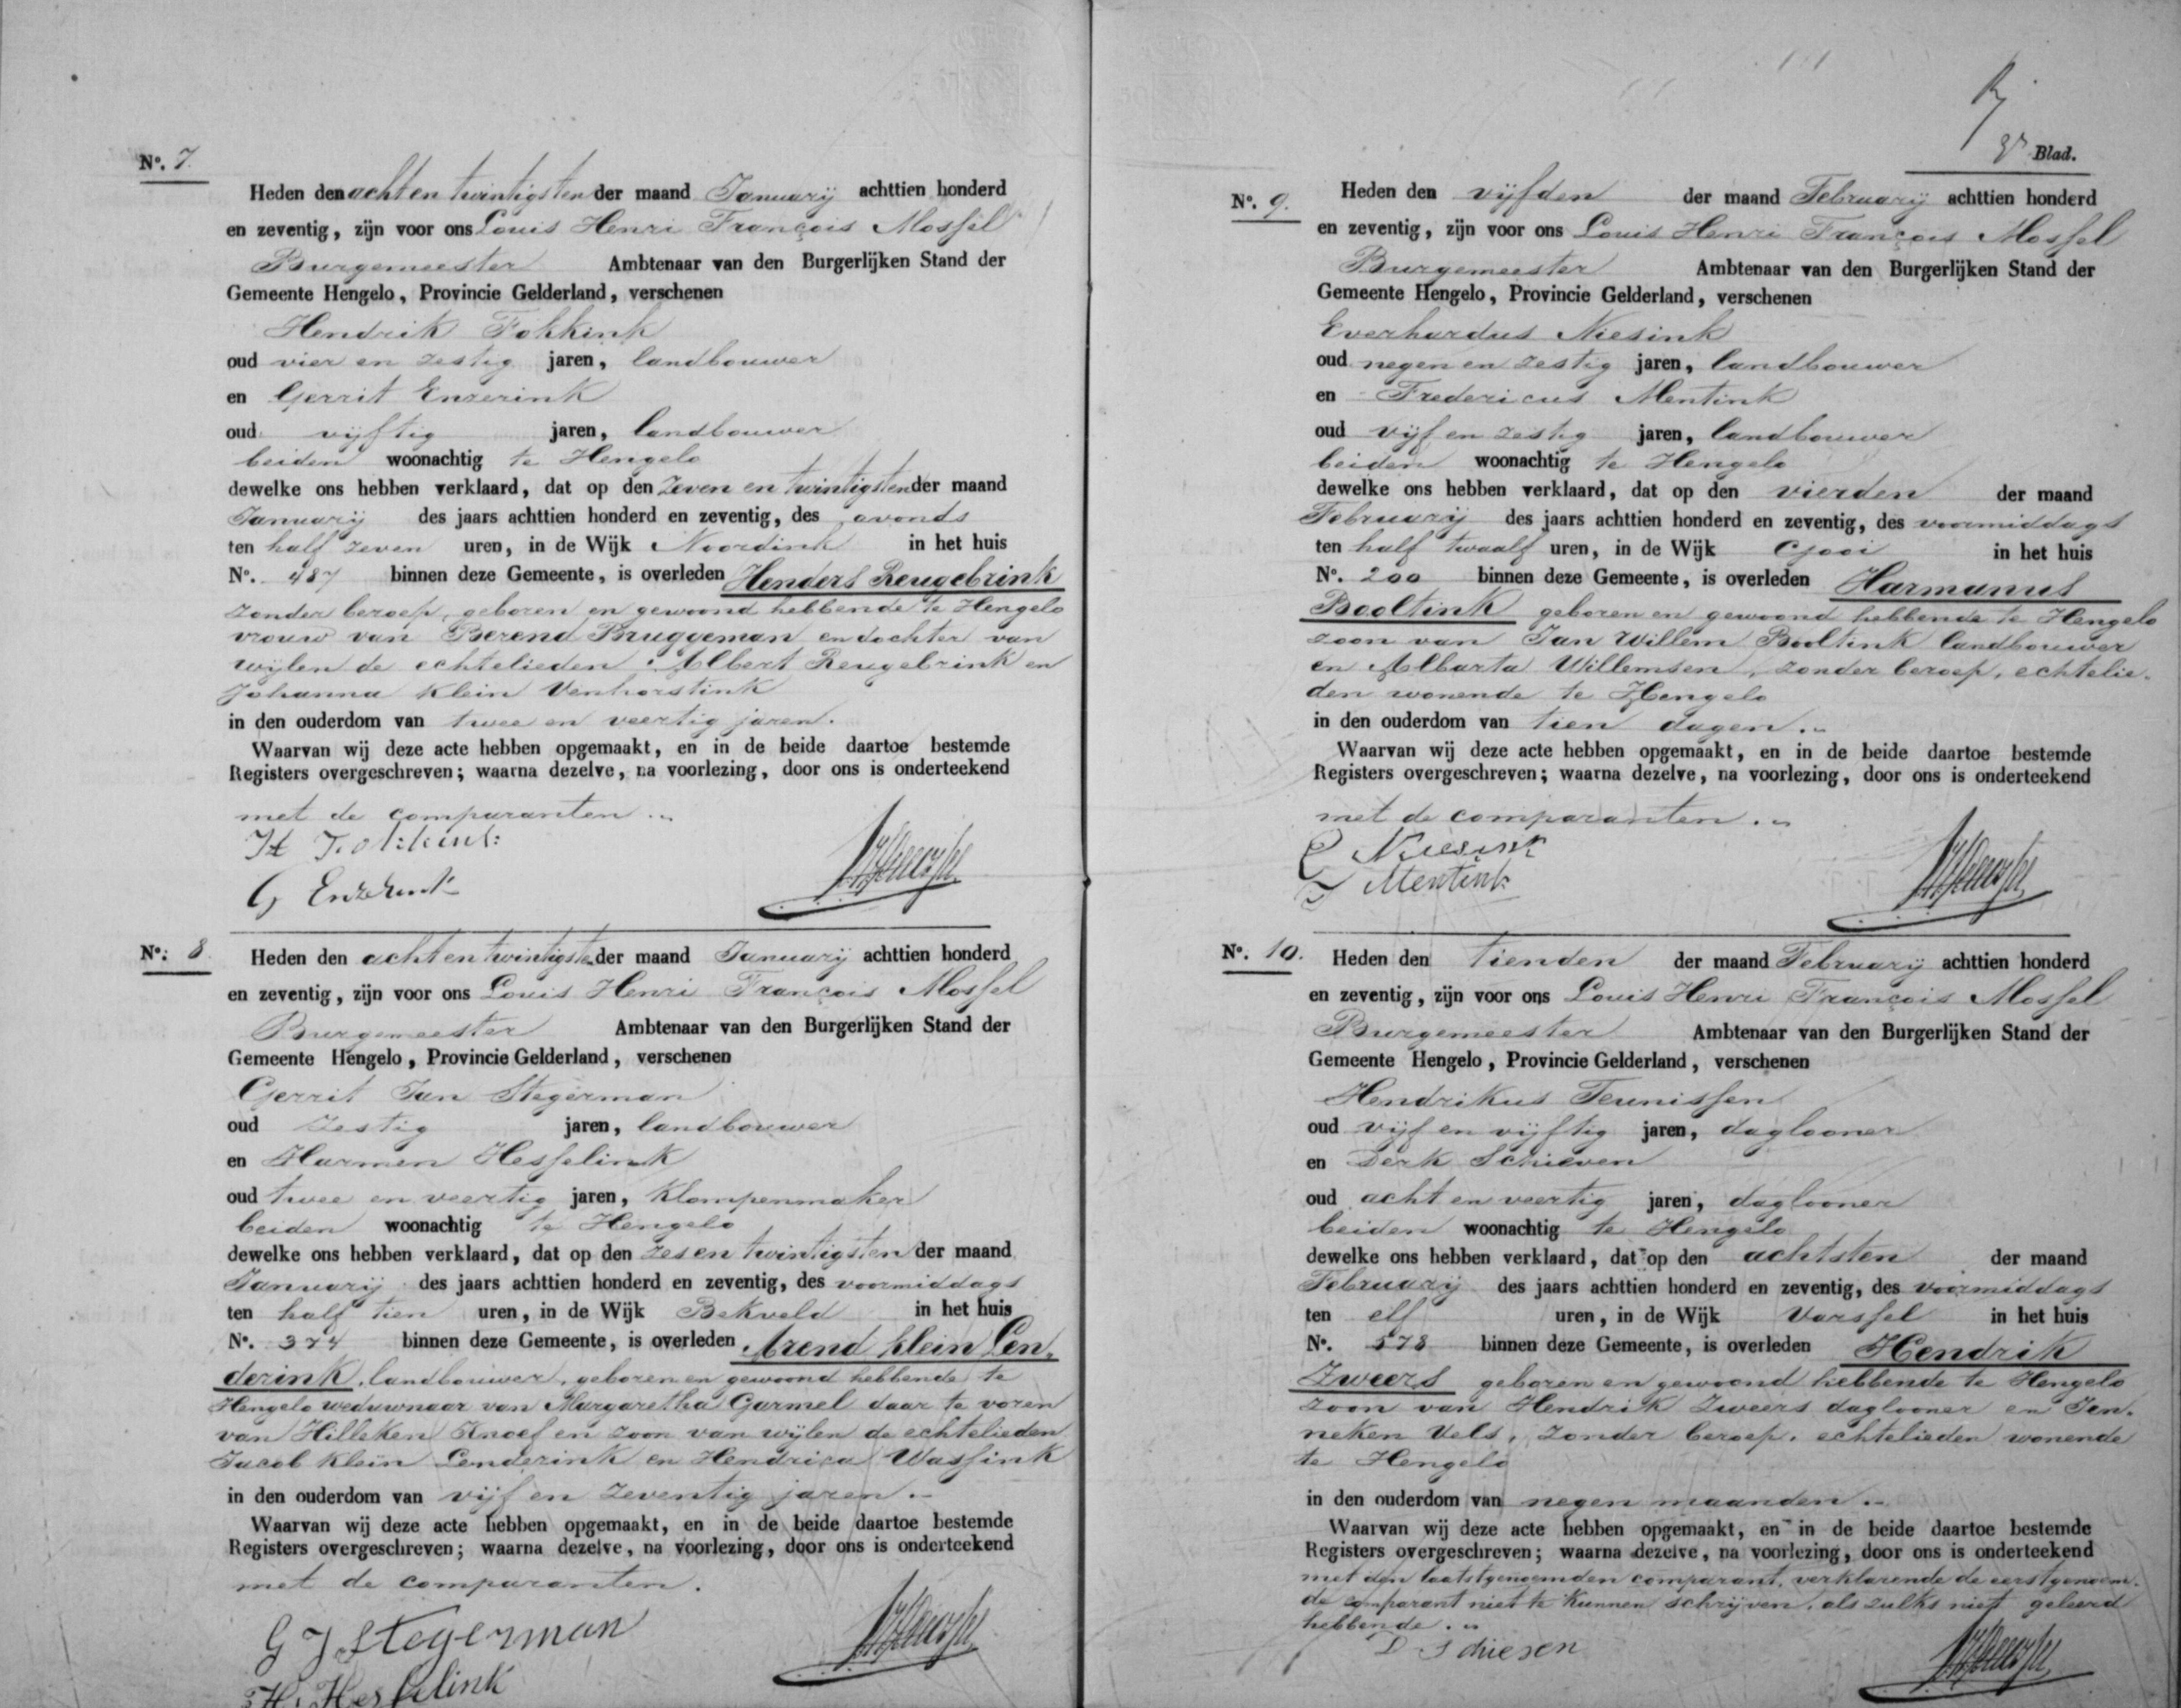 No. 7.
Heden den acht en twintigsten der maand Januarij achttien honderd
en zeventig, zijn voor ons Louis Henri François Mossel
Burgemeester Ambtenaar van den Burgerlijken Stand der
Gemeente Hengelo, Provincie Gelderland, verschenen
Hendrik Fokkink
oud vier en zestig jaren, landbouwer
en Gerrit Enzerink
oud vijftig jaren, landbouwer
beiden woonachtig te Hengelo
dewelke ons hebben verklaard, dat op den zeven en twintigsten der maand
Januarij des jaars achttien honderd en zeventig, des avonds
ten half zeven uren, in de Wijk Noordink in het huis
No. 487 binnen deze Gemeente, is overleden Henders Reugebrink
zonder beroep, geboren en gewoond hebbende te Hengelo
vrouw van Berend Bruggeman en dochter van
wijlen de echtelieden Albert Reugebrink en
Johanna Klein Venhorstink
in den ouderdom van twee en veertig jaren.
Waarvan wij deze acte hebben opgemaakt, en in de beide daartoe bestemde
Registers overgeschreven; waarna dezelve, na voorlezing, door ons is onderteekend
met de comparanten.
H Fokkink
G Enzerink
No. 8.
Heden den acht en twintigste der maand Januarij achttien honderd
en zeventig, zijn voor ons Louis Henri François Mossel
Burgemeester Ambtenaar van den Burgerlijken Stand der
Gemeente Hengelo, Provincie Gelderland, verschenen
Gerrit Jan Stegerman
oud zestig jaren, landbouwer
en Harmen Hesselink
oud twee en veertig jaren, klompenmaker
beiden woonachtig te Hengelo
dewelke ons hebben verklaard, dat op den zes en twintigsten der maand
Januarij des jaars achttien honderd en zeventig, des voormiddags
ten half tien uren, in de Wijk Bekveld in het huis
No. 374 binnen deze Gemeente, is overleden Arend klein Len-
derink, landbouwer, geboren en gewoond hebbende te
Hengelo weduwnaar van Margaretha Garmel daar te voren
van Hilleken Knoef en zoon van wijlen de echtelieden
Jacob Klein Lenderink en Hendrica Wassink
in den ouderdom van vijf en zeventig jaren.
Waarvan wij deze acte hebben opgemaakt, en in de beide daartoe bestemde
Registers overgeschreven; waarna dezelve, na voorlezing, door ons is onderteekend
met de comparanten.
G J Stegerman
H. Hesselink
Blad.
No. 9.
Heden den vijfden der maand Februarij achttien honderd
en zeventig, zijn voor ons Louis Henri François Mossel
Burgemeester Ambtenaar van den Burgerlijken Stand der
Gemeente Hengelo, Provincie Gelderland, verschenen
Everhardus Niesink
oud negen en zestig jaren, landbouwer
en Fredericus Mentink
oud vijf en zestig jaren, landbouwer
beiden woonachtig te Hengelo
dewelke ons hebben verklaard, dat op den vierden der maand
Februarij des jaars achttien honderd en zeventig, des voormiddags
ten half twaalf uren, in de Wijk Gooi in het huis
No. 200 binnen deze Gemeente, is overleden Harmanus
Booltink geboren en gewoond hebbende te Hengelo
zoon van Jan Willem Booltink landbouwer
en Albarta Willemsen, zonder beroep, echtelie-
den wonende te Hengelo
in den ouderdom van tien dagen.
Waarvan wij deze acte hebben opgemaakt, en in de beide daartoe bestemde
Registers overgeschreven; waarna dezelve, na voorlezing, door ons is onderteekend
met de comparanten.
E Niesink
F Mentink
No. 10.
Heden den tienden der maand Februarij achttien honderd
en zeventig, zijn voor ons Louis Henri François Mossel
Burgemeester Ambtenaar van den Burgerlijken Stand der
Gemeente Hengelo, Provincie Gelderland, verschenen
Hendrikus Teunissen
oud vijf en vijftig jaren, daglooner
en Derk Schieven
oud acht en veertig jaren, daglooner
beiden woonachtig te Hengelo
dewelke ons hebben verklaard, dat op den achtsten der maand
Februarij des jaars achttien honderd en zeventig, des voormiddags
ten elf uren, in de Wijk Varssel in het huis
No. 578 binnen deze Gemeente, is overleden Hendrik
Zweers geboren en gewoond hebbende te Hengelo
zoon van Hendrik Zweers daglooner en Jen-
neken Vels, zonder beroep, echtelieden wonende
te Hengelo
in den ouderdom van negen maanden.
Waarvan wij deze acte hebben opgemaakt, en in de beide daartoe bestemde
Registers overgeschreven; waarna dezelve, na voorlezing, door ons is onderteekend
met den laatstgenoemden comparant, verklarende de eerstgenoem-
de comparant niet te kunnen schrijven, als zulks niet geleerd
hebbende.
D Schieven